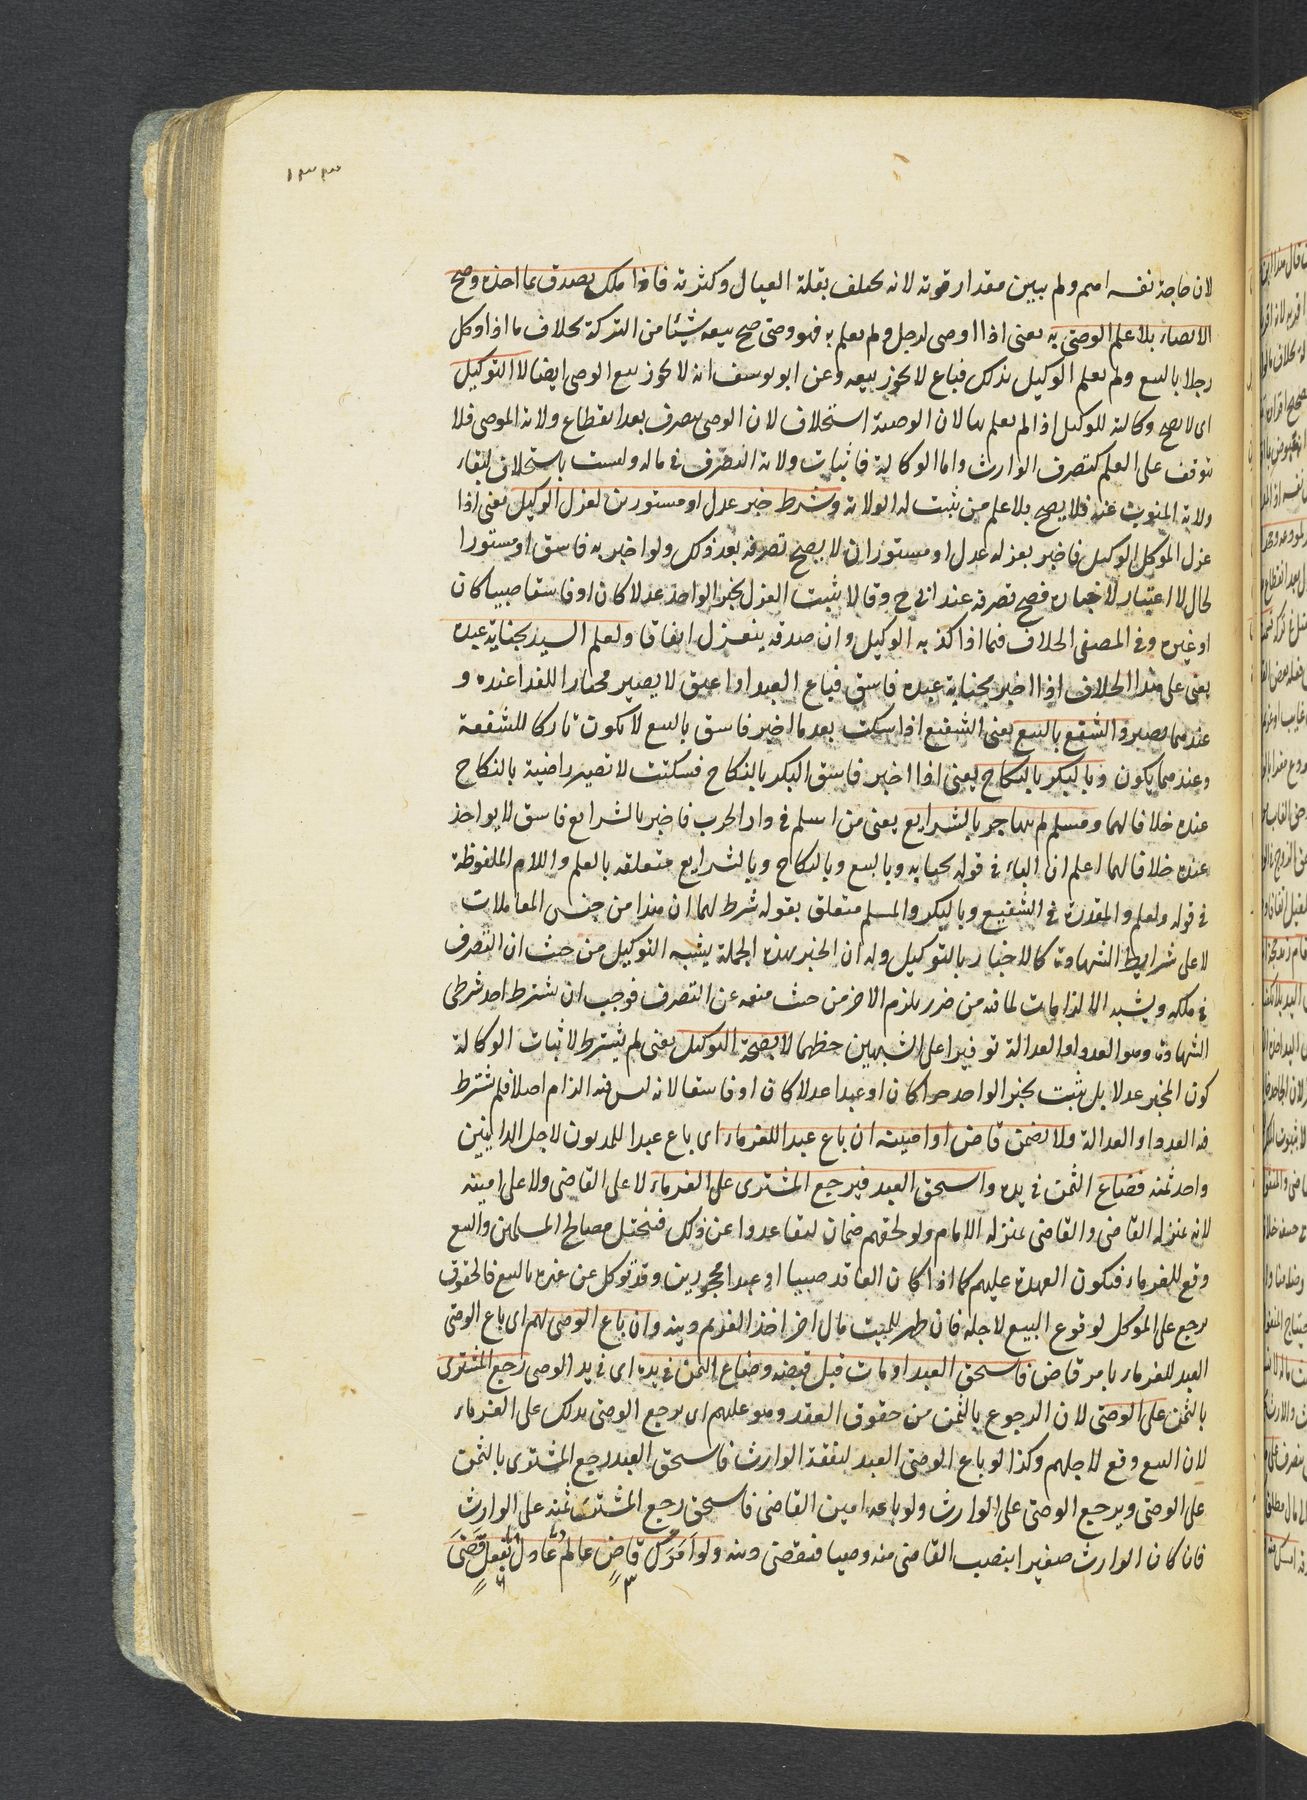 ١٣٣
لان حاجة نفسه اهم ولم يبين مقدار قوته لانه يختلف بقلة العيال وكثرته فاذا ملك تصدق بما اخذه وصح
الايصاء بلا علم الوصى به يعنى اذا اوصى لرجل ولم يعلم به فهو وصى صح بيعه شيئا من التركة بخلاف ما اذا وكل
رجلا بالبيع ولم يعلم الوكيل بذلك فباع لا يجوز بيعه وعن ابو يوسف انه لا يجوز بيع الوصى ايضا لا التوكيل
اى لا يصح وكالته للوكيل اذا لم يعلم بها لان الوصية استخلاف لان الوصى يتصرف بعد انقطاع ولاية الموصى فلا
يتوقف على العلم كتصرف الوارث واما الوكالة فاثبات ولاية التصرف فى ماله وليست باستخلاف لبقاء
ولاية المنوب عنه فلا يصح بلا علم من يثبت له الولاية وشرط خبر عدل او مستورين لعزل الوكيل يعنى اذا
عزل الموكل الوكيل فاخبر بعزله عدل او مستوران لا يصح تصرفه بعد ذلك ولو اخبر به فاسق او مستورا
لحال لا اعتبار لاخباره فصح تصرفه عند ابى ح وقالا يثبت العزل بخبر الواحد عدلا كان او فاسقا صبيا كان
او غيره وفى المصفى الخلاف فيما اذا كذبه الوكيل وان صدقه ينعزل اتفاقا ولعلم السيد بجناية عبده
يعنى على هذا الخلاف اذا اخبر بجناية عبده فاسق فباع العبد او اعتق لا يصير مختارا للفدا عنده و
عندهما يصير والشفيع بالبيع يعنى الشفيع اذا سكت بعد ما اخبر فاسق بالبيع لا يكون تاركا للشفعة
وعندهما يكون وبالبكر بالنكاح يعنى اذا اخبر فاسق البكر بالنكاح فسكتت لا تصير راضية بالنكاح
عنده خلافا لهما ومسلم لم يهاجر بالشرايع يعنى من اسلم فى دار الحرب فاخبر بالشرايع فاسق لا يواخذ
عنده خلافا لهما اعلم ان الباء فى قوله بجناية وبالبيع وبالنكاح وبالشرايع متعلقه بالعلم واللام الملفوظة
فى قوله ولعلم والمقدرة فى الشفيع وبالبكر والمسلم متعلق بقوله شرط لهما ان هذا من جنس المعاملات
لا على شرايط الشهادة كالاخبار بالتوكيل وله ان الخبر بهذه الجملة يشبه التوكيل من حيث ان التصرف
فى ملكه ويشبه الالزامات لما فيه من ضرر يلزم الاخر من حيث منعه عن التصرف فوجب ان يشترط احد شرطى
الشهادة وهو العدد او العدالة توفيرا على الشبهين حظهما لا بصحة التوكيل يعنى لم يشترط لاثبات الوكالة
كون المخبر عدلا بل يثبت بخبر الواحد حرا كان او عبدا عدلا كان او فاسقا لانه ليس فيه الزام اصلا فلم يشترط
فيه العدد او العدالة ولا يضمن قاض او امينه ان باع عبدا للغرماء اى باع عبدا للمديون لاجل الداينين
واخذ ثمنه فضاع الثمن فى يده واستحق العبد فيرجع المشترى على الغرماء لا على القاضى ولا على امينه
لانه بمنزلة القاضى والقاضى بمنزلة الامام ولو لحقهم ضمان لتقاعدوا عن ذلك فتختل مصالح المسلمين والبيع
وقع للغرماء فتكون العهدة عليهم كما اذا كان العاقد صبيا او عبدا محجورين وقد توكل عن غيره بالبيع فالحقوق
يرجع على الموكل لوقوع البيع لاجله فان ظهر للميت مال اخر اخذ الغريم دينه وان باع الوصى لهم اى باع الوصى
العبد للغرماء بامر قاض فاستحق العبد او مات قبل قبضه وضاع الثمن فى يده اى فى يد الوصى رجع المشترى
بالثمن على الوصى لان الرجوع بالثمن من حقوق العقد وهو عليهم اى يرجع الوصى بذلك على الغرماء
لان البيع وقع لاجلهم وكذا لو باع الوصى العبد لنفقة الوارث فاستحق العبد رجع المشترى بالثمن
على الوصى ويرجع الوصى على الوارث ولو باعه امين القاضى فاستحق رجع المشترى بثمنه على الوارث
فان كان الوارث صغيرا ينصب القاضى منه وصيا فيقضى دينه ولو امرك قاض عالم عادل بفعل قضى